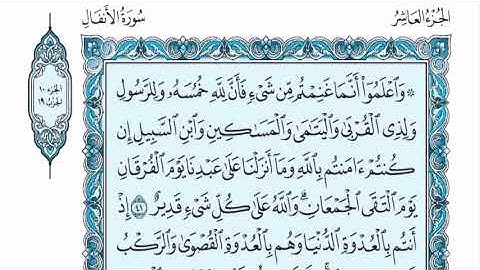 الجزء العاشر
سورة الأنفال
الجزء ١٠
الحزب ١٩
۞ وَٱعۡلَمُوٓاْ أَنَّمَا غَنِمۡتُم مِّن شَيۡءٖ فَأَنَّ لِلَّهِ خُمُسَهُۥ وَلِلرَّسُولِ
وَلِذِي ٱلۡقُرۡبَىٰ وَٱلۡيَتَٰمَىٰ وَٱلۡمَسَٰكِينِ وَٱبۡنِ ٱلسَّبِيلِ إِن
كُنتُمۡ ءَامَنتُم بِٱللَّهِ وَمَآ أَنزَلۡنَا عَلَىٰ عَبۡدِنَا يَوۡمَ ٱلۡفُرۡقَانِ
يَوۡمَ ٱلۡتَقَى ٱلۡجَمۡعَانِۗ وَٱللَّهُ عَلَىٰ كُلِّ شَيۡءٖ قَدِيرٌ ٤١ إِذۡ
أَنتُم بِٱلۡعُدۡوَةِ ٱلدُّنۡيَا وَهُم بِٱلۡعُدۡوَةِ ٱلۡقُصۡوَىٰ وَٱلرَّكۡبُ